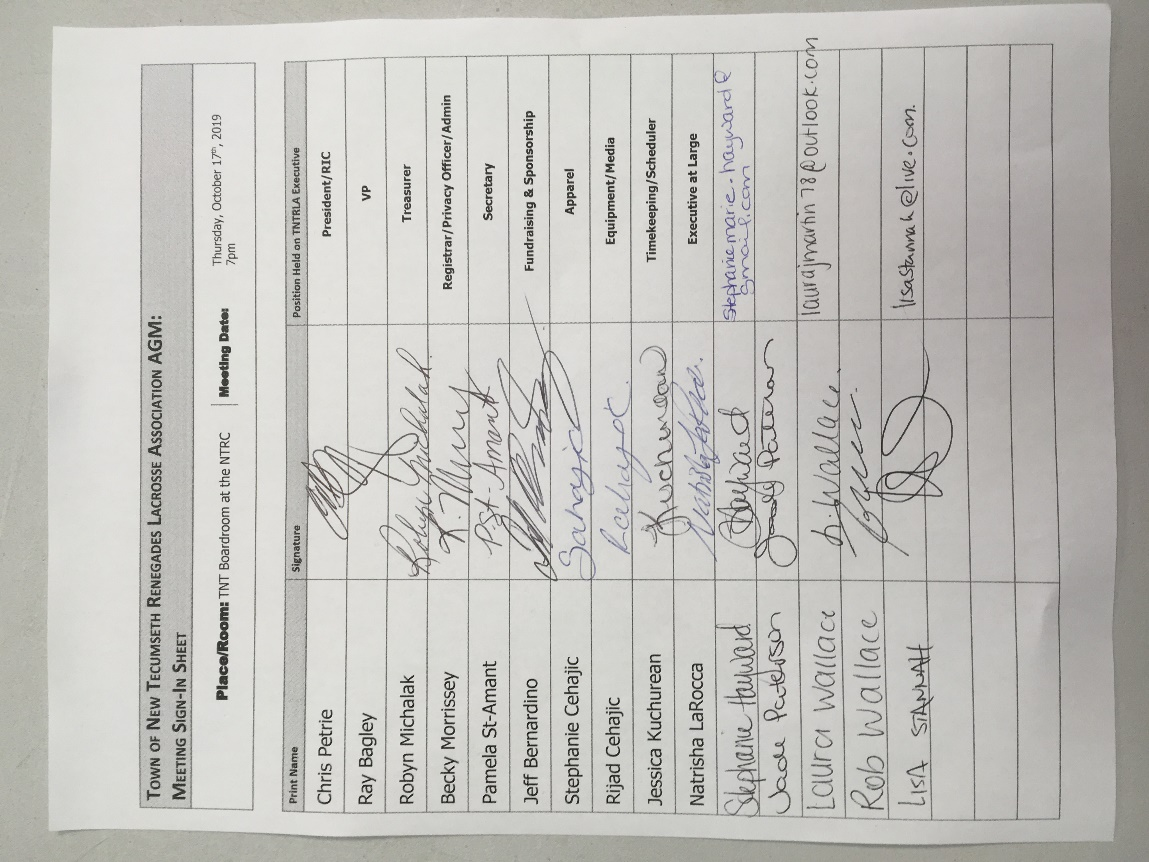 TOWN OF NEW TECUMSETH RENEGADES LACROSSE ASSOCIATION AGM:
MEETING SIGN-IN SHEET
Place/Room: TNT Boardroom at the NTRC Meeting Date: Thursday, October 17th, 2019
7pm
Print Name Signature Position Held on TNTRLA Executive
Chris Petrie President/RIC
Ray Bagley VP
Robyn Michalak Robyn Michalak Treasurer
Becky Morrissey Registrar/Privacy Officer/Admin
Pamela St-Amant P. St-Amant Secretary
Jeff Bernardino Fundraising & Sponsorship
Stephanie Cehajic Apparel
Rijad Cehajic Equipment/Media
Jessica Kuchurean JKuchurean Timekeeping/Scheduler
Natrisha LaRocca Executive at Large
Stephanie Hayward SHayward stephaniemarie.hayward@
gmail.com
Jade Paterson
Laura Wallace L. Wallace. laurajmartin78@outlook.com
Rob Wallace
LISA STANNAH lisastannah@live.com.